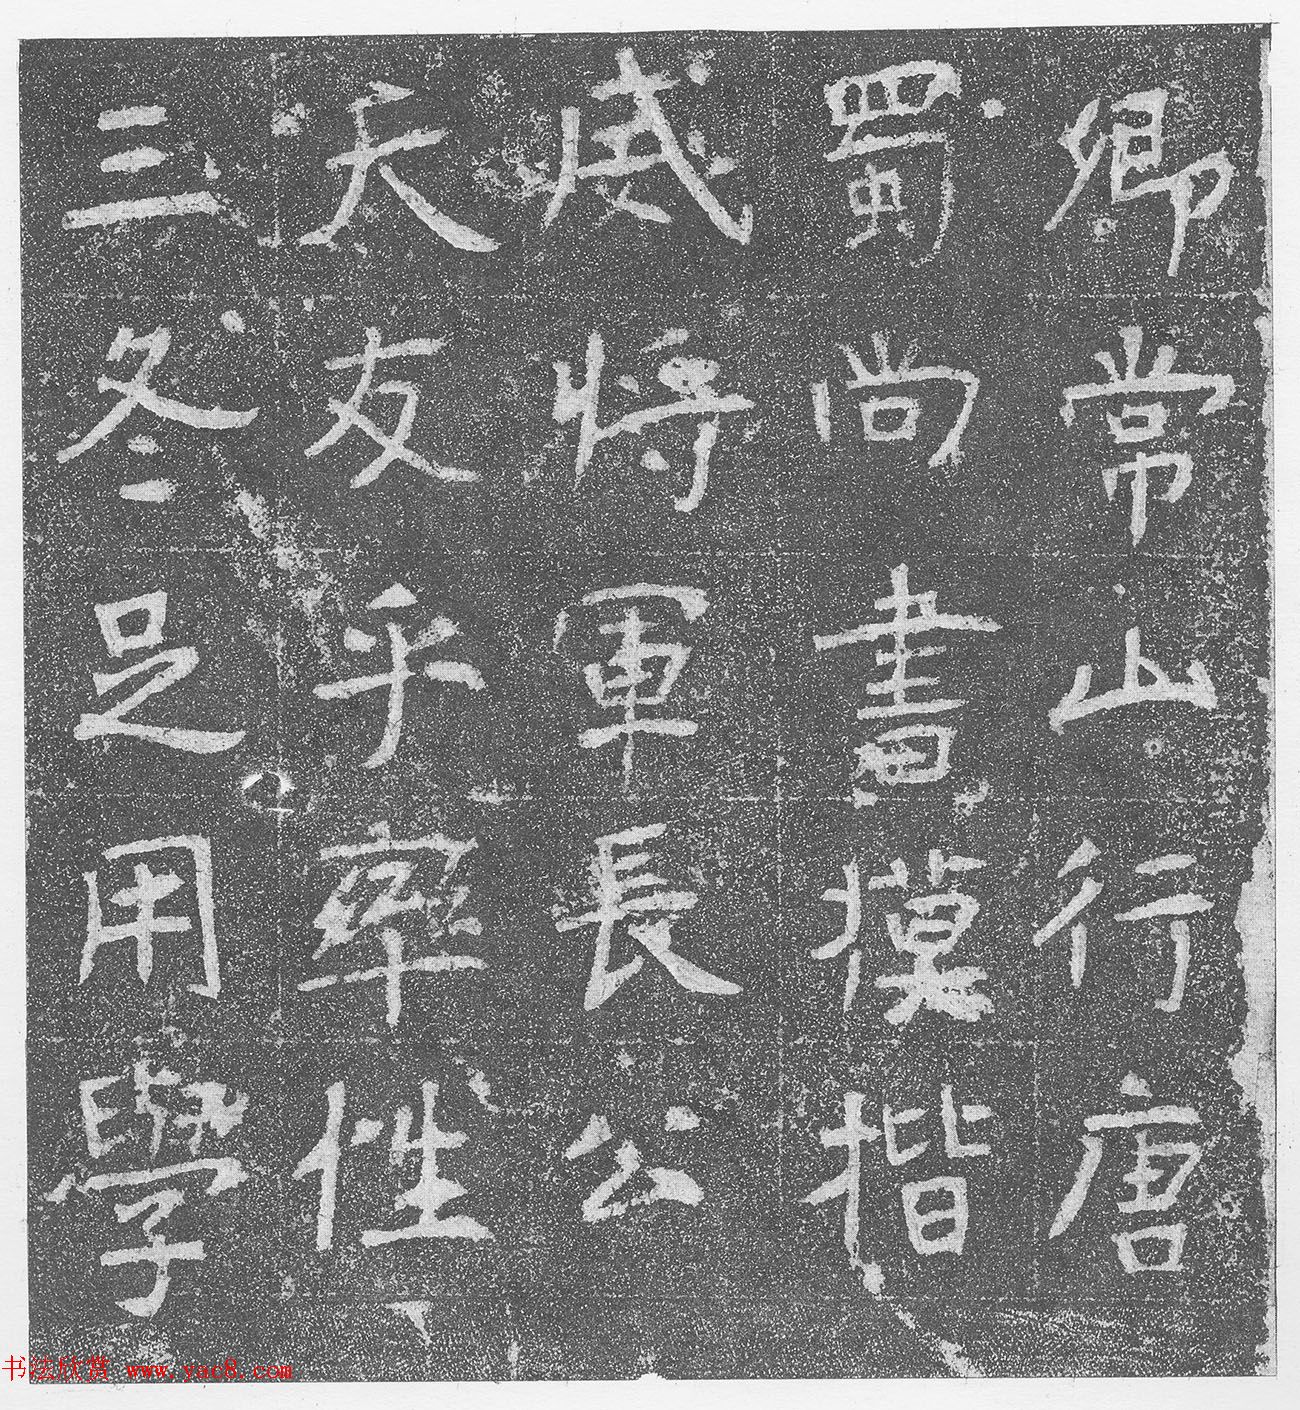 卿常山行唐
蜀尚書模楷
威將軍長公
天友乎率性
三冬足用學
书法欣赏 www.yac8.com